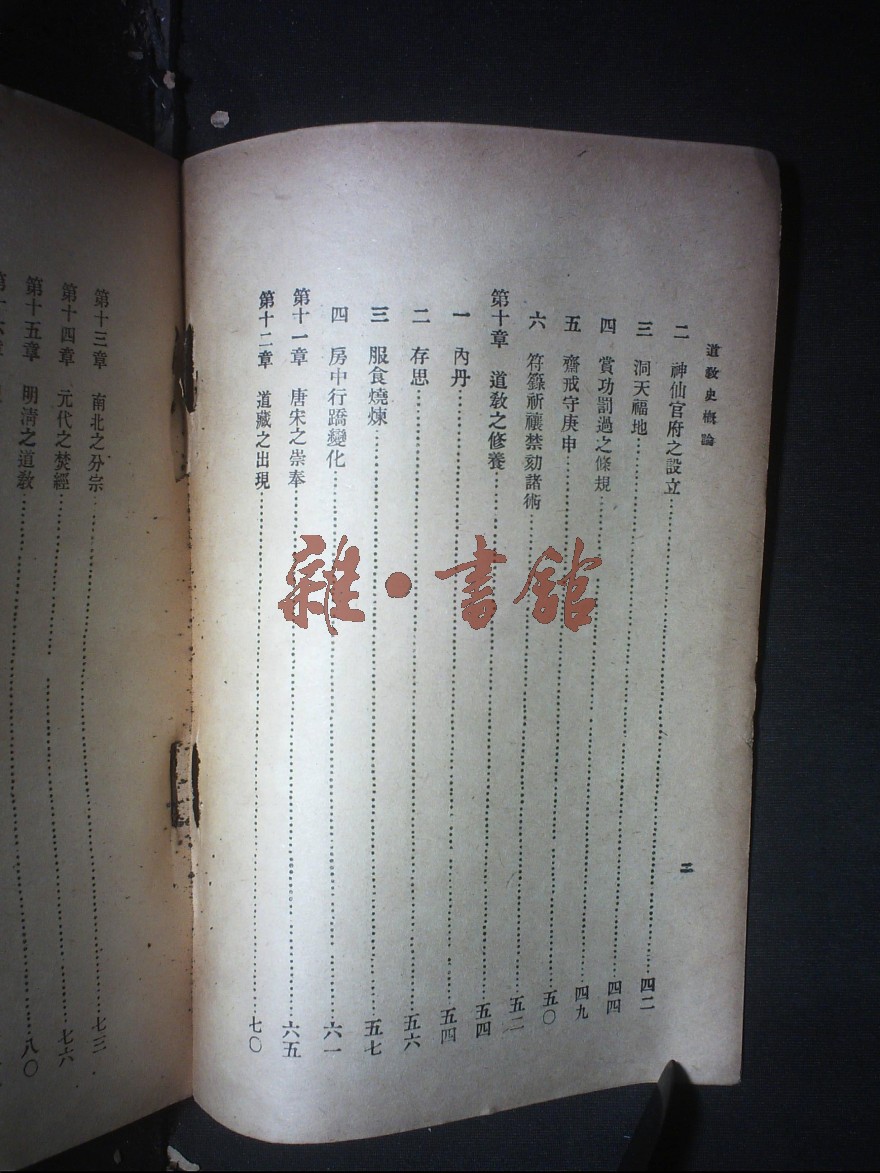 道教史概論
二
二　神仙官府之設立……四二
三　洞天福地……四四
四　賞功罰過之條規……四九
五　齋戒守庚申……五〇
六　符籙祈禳禁劾諸術……五二
第十章　道教之修養……五四
一　內丹……五四
二　存思……五六
三　服食燒煉……五七
四　房中行蹻變化……六一
第十一章　唐宋之崇奉……六五
第十二章　道藏之出現……七〇
第十三章　南北之分宗……七三
第十四章　元代之焚經……七六
第十五章　明清之道教……八〇
雜·書館